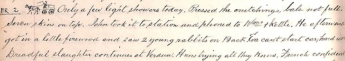 Only a few light showers today. Pressed the cutchings bale not full.
Seven skins on top. John took it to station and phoned to & Kettle. He afterwards
got in a little firewood and saw 9 young rabbits on Back Rd can't start ear, hard
Dreadful slaughter continues at Verdun. Huns trying all they know. French confident